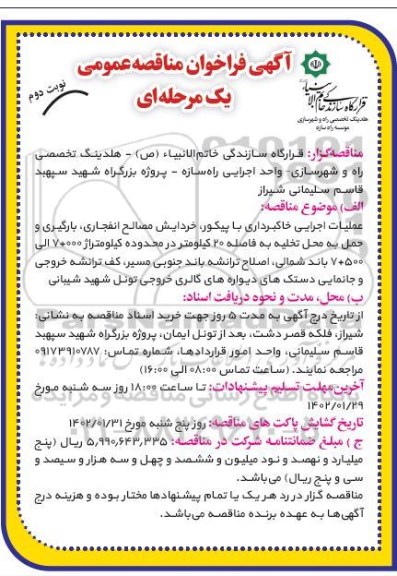 آگهی فراخوان مناقصه عمومی
یک مرحله‌ای
نوبت دوم
قرارگاه سازندگی خاتم الانبیاء
هلدینگ تخصصی راه و شهرسازی
موسسه راه سازه
مناقصه‌گزار: قرارگاه سازندگی خاتم‌الانبیاء (ص) - هلدینگ تخصصی
راه و شهرسازی- واحد اجرایی راه‌سازه - پروژه بزرگراه شهید سپهبد
قاسم سلیمانی شیراز
الف) موضوع مناقصه:
عملیات اجرایی خاکبرداری با پیکور، خردایش مصالح انفجاری، بارگیری و
حمل به محل تخلیه به فاصله ۲۰ کیلومتر در محدوده کیلومتراژ ۷+۰۰۰ الی
۷+۵۰۰ باند شمالی، اصلاح ترانشه باند جنوبی مسیر، کف ترانشه خروجی
و جانمایی دستک های دیواره های گالری خروجی تونل شهید شیبانی
ب) محل، مدت و نحوه دریافت اسناد:
از تاریخ درج آگهی به مدت ۵ روز جهت خرید اسناد مناقصه به نشانی:
شیراز، فلکه قصر دشت، بعد از تونل ایمان، پروژه بزرگراه شهید سپهبد
قاسم سلیمانی، واحد امور قراردادها، شماره تماس: ۰۹۱۷۳۹۱۰۷۸۷
مراجعه نمایند. (ساعت تماس ۰۸:۰۰ الی ۱۶:۰۰)
آخرین مهلت تسلیم پیشنهادات: تا ساعت ۱۸:۰۰ روز سه شنبه مورخ
۱۴۰۲/۰۱/۲۹
تاریخ گشایش پاکت های مناقصه: روز پنج شنبه مورخ ۱۴۰۲/۰۱/۳۱
ج) مبلغ ضمانتنامه شرکت در مناقصه: ۵,۹۹۰,۶۴۳,۳۳۵ ریال (پنج
میلیارد و نهصد و نود میلیون و ششصد و چهل و سه هزار و سیصد و
سی و پنج ریال) می‌باشد.
مناقصه گزار در رد هر یک یا تمام پیشنهادها مختار بوده و هزینه درج
آگهی‌ها به عهده برنده مناقصه می‌باشد.